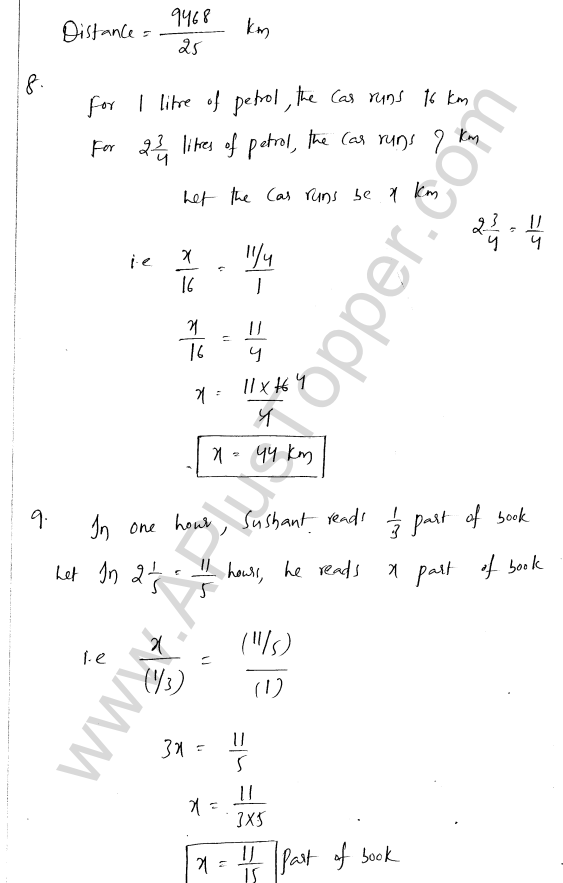 Distance = 9468/25 km
8.
For 1 litre of petrol, the car runs 16 km
For 2 3/4 litres of petrol, the car runs ? km
Let the car runs be x km
2 3/4 = 11/4
i.e x/16 = (11/4)/1
x/16 = 11/4
x = (11 × 16 4)/4
x = 44 km
9. In one hour, Sushant reads 1/3 part of book
Let In 2 1/5 = 11/5 hours, he reads x part of book
i.e x/(1/3) = (11/5)/(1)
3x = 11/5
x = 11/(3×5)
x = 11/15 part of book
www.APlusTopper.com